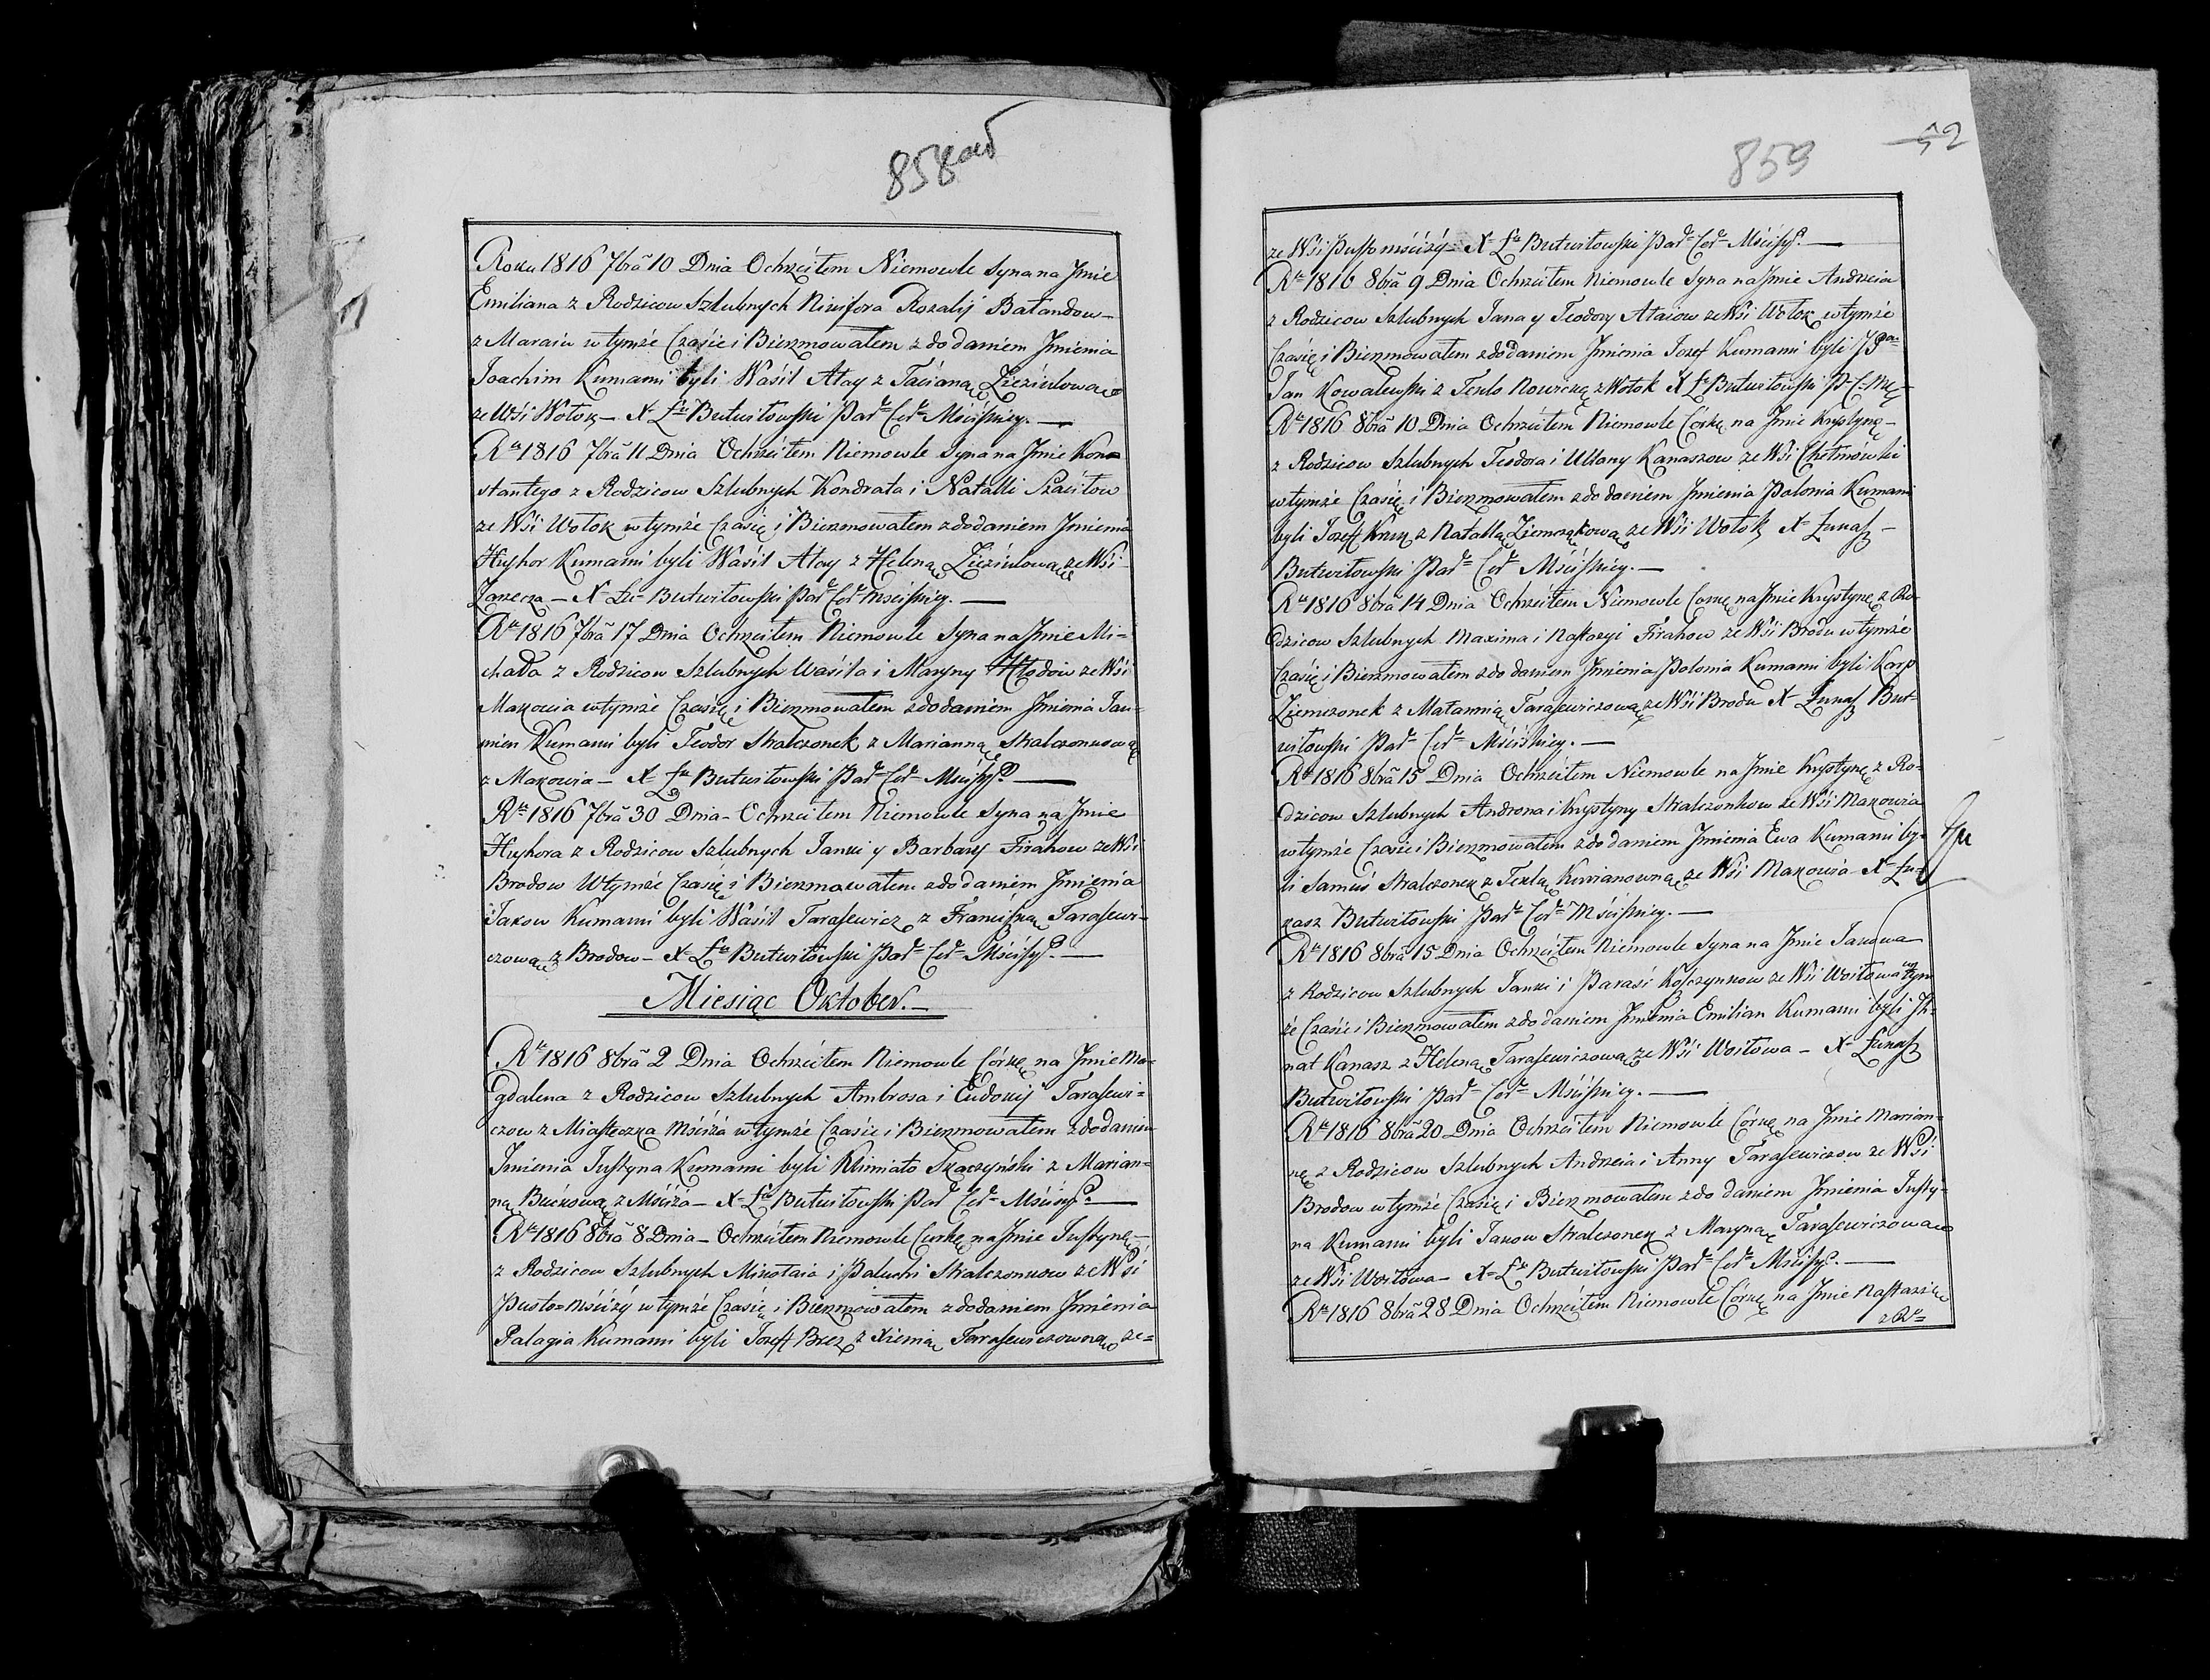 858 об
Roku 1816 7brã 10 Dnia Ochrzciłem Niemowle Syna na Jmie
Emiliana z Rodzicow Szlubnych Nizifora Rozalij Bałandow
z Maraiu w tymże Czasie i Bierzmowałem z dodaniem Jmienia
Joachim Kumami byli Waśil Atay z Tacianą Zieziulową
ze Wśi Wołok – X Łu Butwiłowski Par Cer Mściżkiey. —
Rku 1816 7brã 11 Dnia Ochrzciłem Niemowle Syna na Jmie Kon=
stantego z Rodzicow Szlubnych Kondrata i Natalli Szaciłow
ze Wśi Wołok w tymże Czasię i Bierzmowałem z dodaniem Jmienia
Hryhor Kumami byli Waśil Atay z Heleną Zieziulową ze Wśi
Zarecza – X Łu Butwiłowski Par Cer Mściżkiey. —
Rku 1816 7brã 17 Dnia Ochrzciłem Niemowle Syna na Jmie Mi=
chała z Rodzicow Szlubnych Waśila i Maryny Hłodow ze Wśi
Makowia w tymże Czasię i Bierzmowałem z dodaniem Jmienia Jau=
mien Kumami byli Teodor Skalczonek z Marianną Skalczonkową
z Makowia – X Łu Butwiłowski Par Cer Mściż —
Rku 1816 7brã 30 Dnia – Ochrzciłem Niemowle Syna na Jmie
Hryhora z Rodzicow Szlubnych Janki y Barbary Firahow ze Wśi
Brodow W tymże Czasię i Bierzmowałem z dodaniem Jmienia
Jakow Kumami byli Waśil Tarasewicz z Franciszką Tarasewi=
czową z Brodow – X Łu Butwiłowski Par Cer Mściż —
Miesiąc Oktober. –
Rku 1816 8brã 2 Dnia Ochrzciłem Niemowle Córkę na Jmie Ma=
gdalena z Rodzicow Szlubnych Ambrosa i Eudokij Tarasewi=
czow z Miasteczka Mściża w tymże Czasie i Bierzmowałem z dodaniem
Jmienia Justyna Kumami byli Klimiato Tkaczyński z Marian=
ną Bućkową z Mściża – X Łu Butwiłowski Par Cer Mściż —
Rku 1816 8brã 8 Dnia – Ochrzciłem Niemowle Corkę na Jmie Justynę –
z Rodzicow Szlubnych Mikołaia i Paluchi Skalczonkow ze Wśi
Pusto=Mściży w tymże Czasię i Bierzmowałem z dodaniem Jmienia
Palagia Kumami byli Jozeff Brez z Xienią Tarasewiczowną ze=
859 52
ze Wśi Pusto mściży – X Łu Butwiłowski Par Cer Mściż —
Rku 1816 8brã 9 Dnia Ochrzciłem Niemowle Syna na Jmie Andrzeia
z Rodzicow Szlubnych Jana y Teodory Ataiow ze Wśi Wołok w tymże
Czasię i Bierzmowałem z dodaniem Jmienia Jozef Kumami byli
Jan Kowalewski z Teklo Nowiczą z Wołok X Łu Butwiłowski P C Mś
Rku 1816 8brã 10 Dnia Ochrzciłem Niemowle Córkę na Jmie Krystynę –
z Rodzicow Szlubnych Teodora i Ullany Kanaszow ze Wśi Chełmowki
w tymże Czasię i Bierzmowałem z dodaniem Jmienia Polonia Kumami
byli Jozeff Krez z Natallą Ziemcząkową ze Wśi Wołok X Łukasz –
Butwiłowski Par Cer Mściżkiey. —
Rku 1816 8brã 14 Dnia Ochrzciłem Niemowle Corkę na Jmie Krystynę z Ro=
dzicow Szlubnych Maxima i Nastazyi Firahow ze Wśi Brodu w tymże
Czasię i Bierzmowałem z dodaniem Jmienia Polonia Kumami byli Karp
Ziemczonek z Matanną Tarasewiczową ze Wśi Brodu X Łukasz But=
wiłowski Par Cer Mściżkiey. —
Rku 1816 8brã 15 Dnia Ochrzciłem Niemowle na Jmie Krystynę z Ro=
dzicow Szlubnych Androna i Krystyny Skalczonkow ze Wśi Makowia
w tymże Czasie i Bierzmowałem z dodaniem Jmienia Ewa Kumami by=
li Samuś Skalczonek z Teklą Kurianowną ze Wśi Makowia – X Łu=
kasz Butwiłowski Par Cer Mściżkiey. —
Rku 1816 8brã 15 Dnia Ochrzciłem Niemowle Syna na Jmie Jakowa
z Rodzicow Szlubnych Janki i Parasi Kołczynkow ze Wśi Woiłowa w tym
że Czasie i Bierzmowałem z dodaniem Jmienia Emilian Kumami byli Jh=
nat Kanasz z Heleną Tarasewiczową ze Wśi Woiłowa – X Łukasz
Butwiłowski Par Cer Mściżkiey. —
Rku 1816 8brã 20 Dnia Ochrzciłem Niemowle Córkę na Jmie Marian=
nę z Rodzicow Szlubnych Andrzeia i Anny Tarasewiczow ze Wśi
Brodow w tymże Czasię i Bierzmowałem z dodaniem Jmienia Justy=
na Kumami byli Jakow Skalczonek z Maryną Tarasewiczową
ze Wśi Woiłowa – X Łu Butwiłowski Par Cer Mściż —
Rku 1816 8brã 28 Dnia Ochrzciłem Niemowle Córkę na Jmie Nastazię
z R=